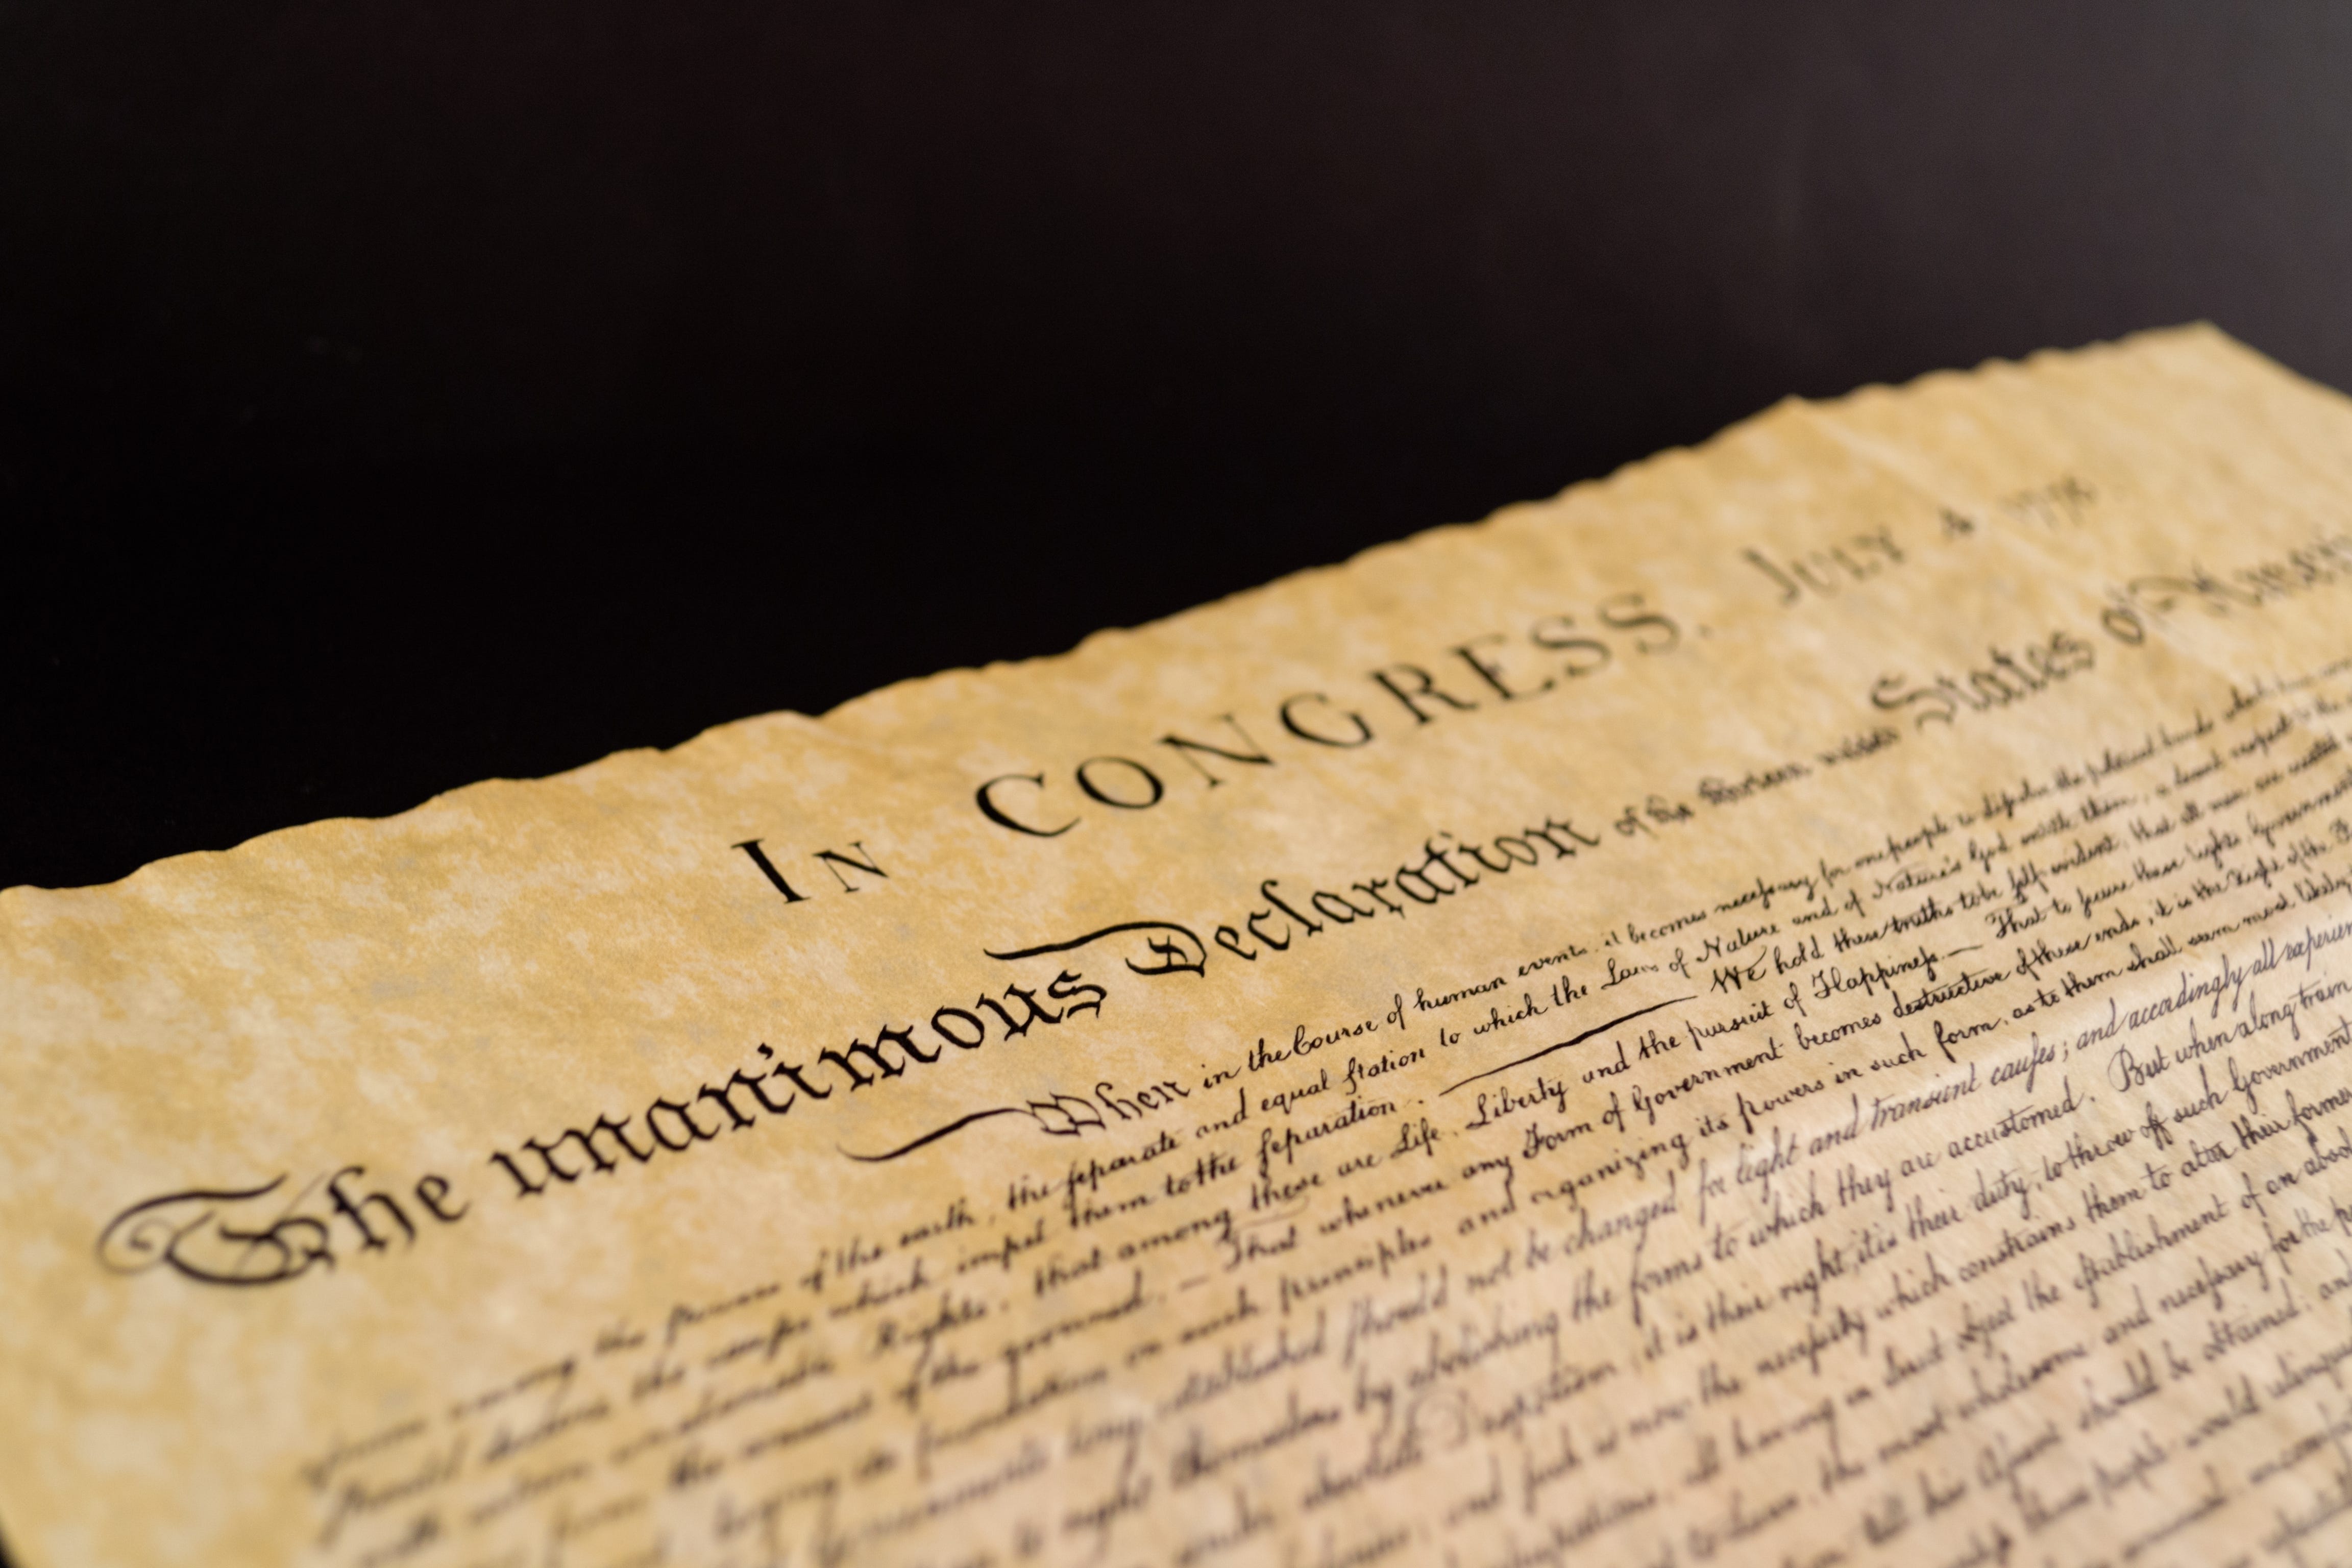 In CONGRESS. July 4, 1776.
The unanimous Declaration of the thirteen united States of Americ
When in the Course of human events, it becomes necessary for one people to dissolve the political bands which have
among the powers of the earth, the separate and equal station to which the Laws of Nature and of Nature's God entitle them, a decent respect to the
should declare the causes which impel them to the separation. We hold these truths to be self-evident, that all men are created
with certain unalienable Rights, that among these are Life, Liberty and the pursuit of Happiness.— That to secure these rights, Governments
from the consent of the governed, — That whenever any Form of Government becomes destructive of these ends, it is the Right of the
laying its foundation on such principles and organizing its powers in such form, as to them shall seem most likely
Governments long established should not be changed for light and transient causes; and accordingly all experien
to right themselves by abolishing the forms to which they are accustomed. But when a long train
under absolute Despotism, it is their right, it is their duty, to throw off such Government
and such is now the necessity which constrains them to alter their former
all having in direct object the establishment of an abso
the most wholesome and necessary for the p
till his Assent should be obtained; and
people would relinquis